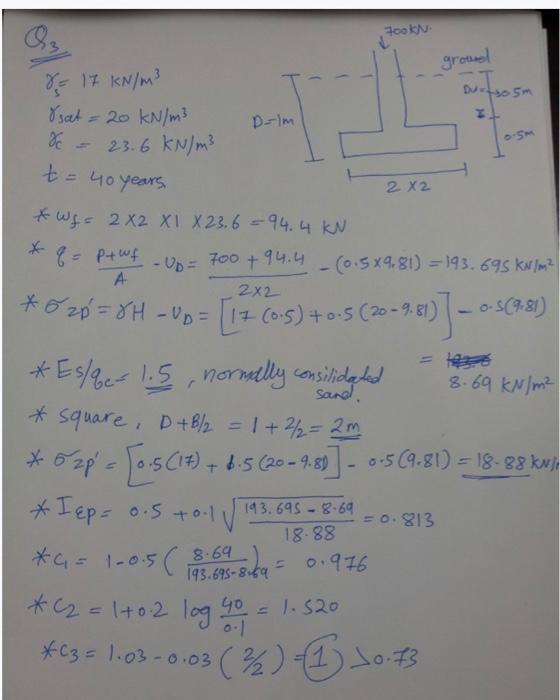 Q3
700 kN.
ground
γs = 17 kN/m³
γsat = 20 kN/m³
γc = 23.6 kN/m³
t = 40 years
D=1m
Dw=0.5m
0.5m
2 x2
* Wf = 2 X2 X1 X23.6 = 94.4 kN
* q = P+Wf/A - UD = 700 + 94.4/2x2 - (0.5x9.81) = 193.695 KN/m²
* σzp' = γH - UD = [17 (0.5) + 0.5 (20-9.81)] - 0.5(9.81)
= 8.69 kN/m²
* Es/qc = 1.5 , normally consilidated
sand.
* square, D+B/2 = 1 + 2/2 = 2m
* σzp' = [0.5(17) + 1.5 (20-9.81)] - 0.5(9.81) = 18.88 kN/m
* Iεp = 0.5 + 0.1 √193.695 - 8.69/18.88 = 0.813
* C1 = 1-0.5 (8.69/193.695-8.69) = 0.976
* C2 = 1+0.2 log 40/0.1 = 1.520
* C3 = 1.03-0.03 (2/2) = 1 > 0.73